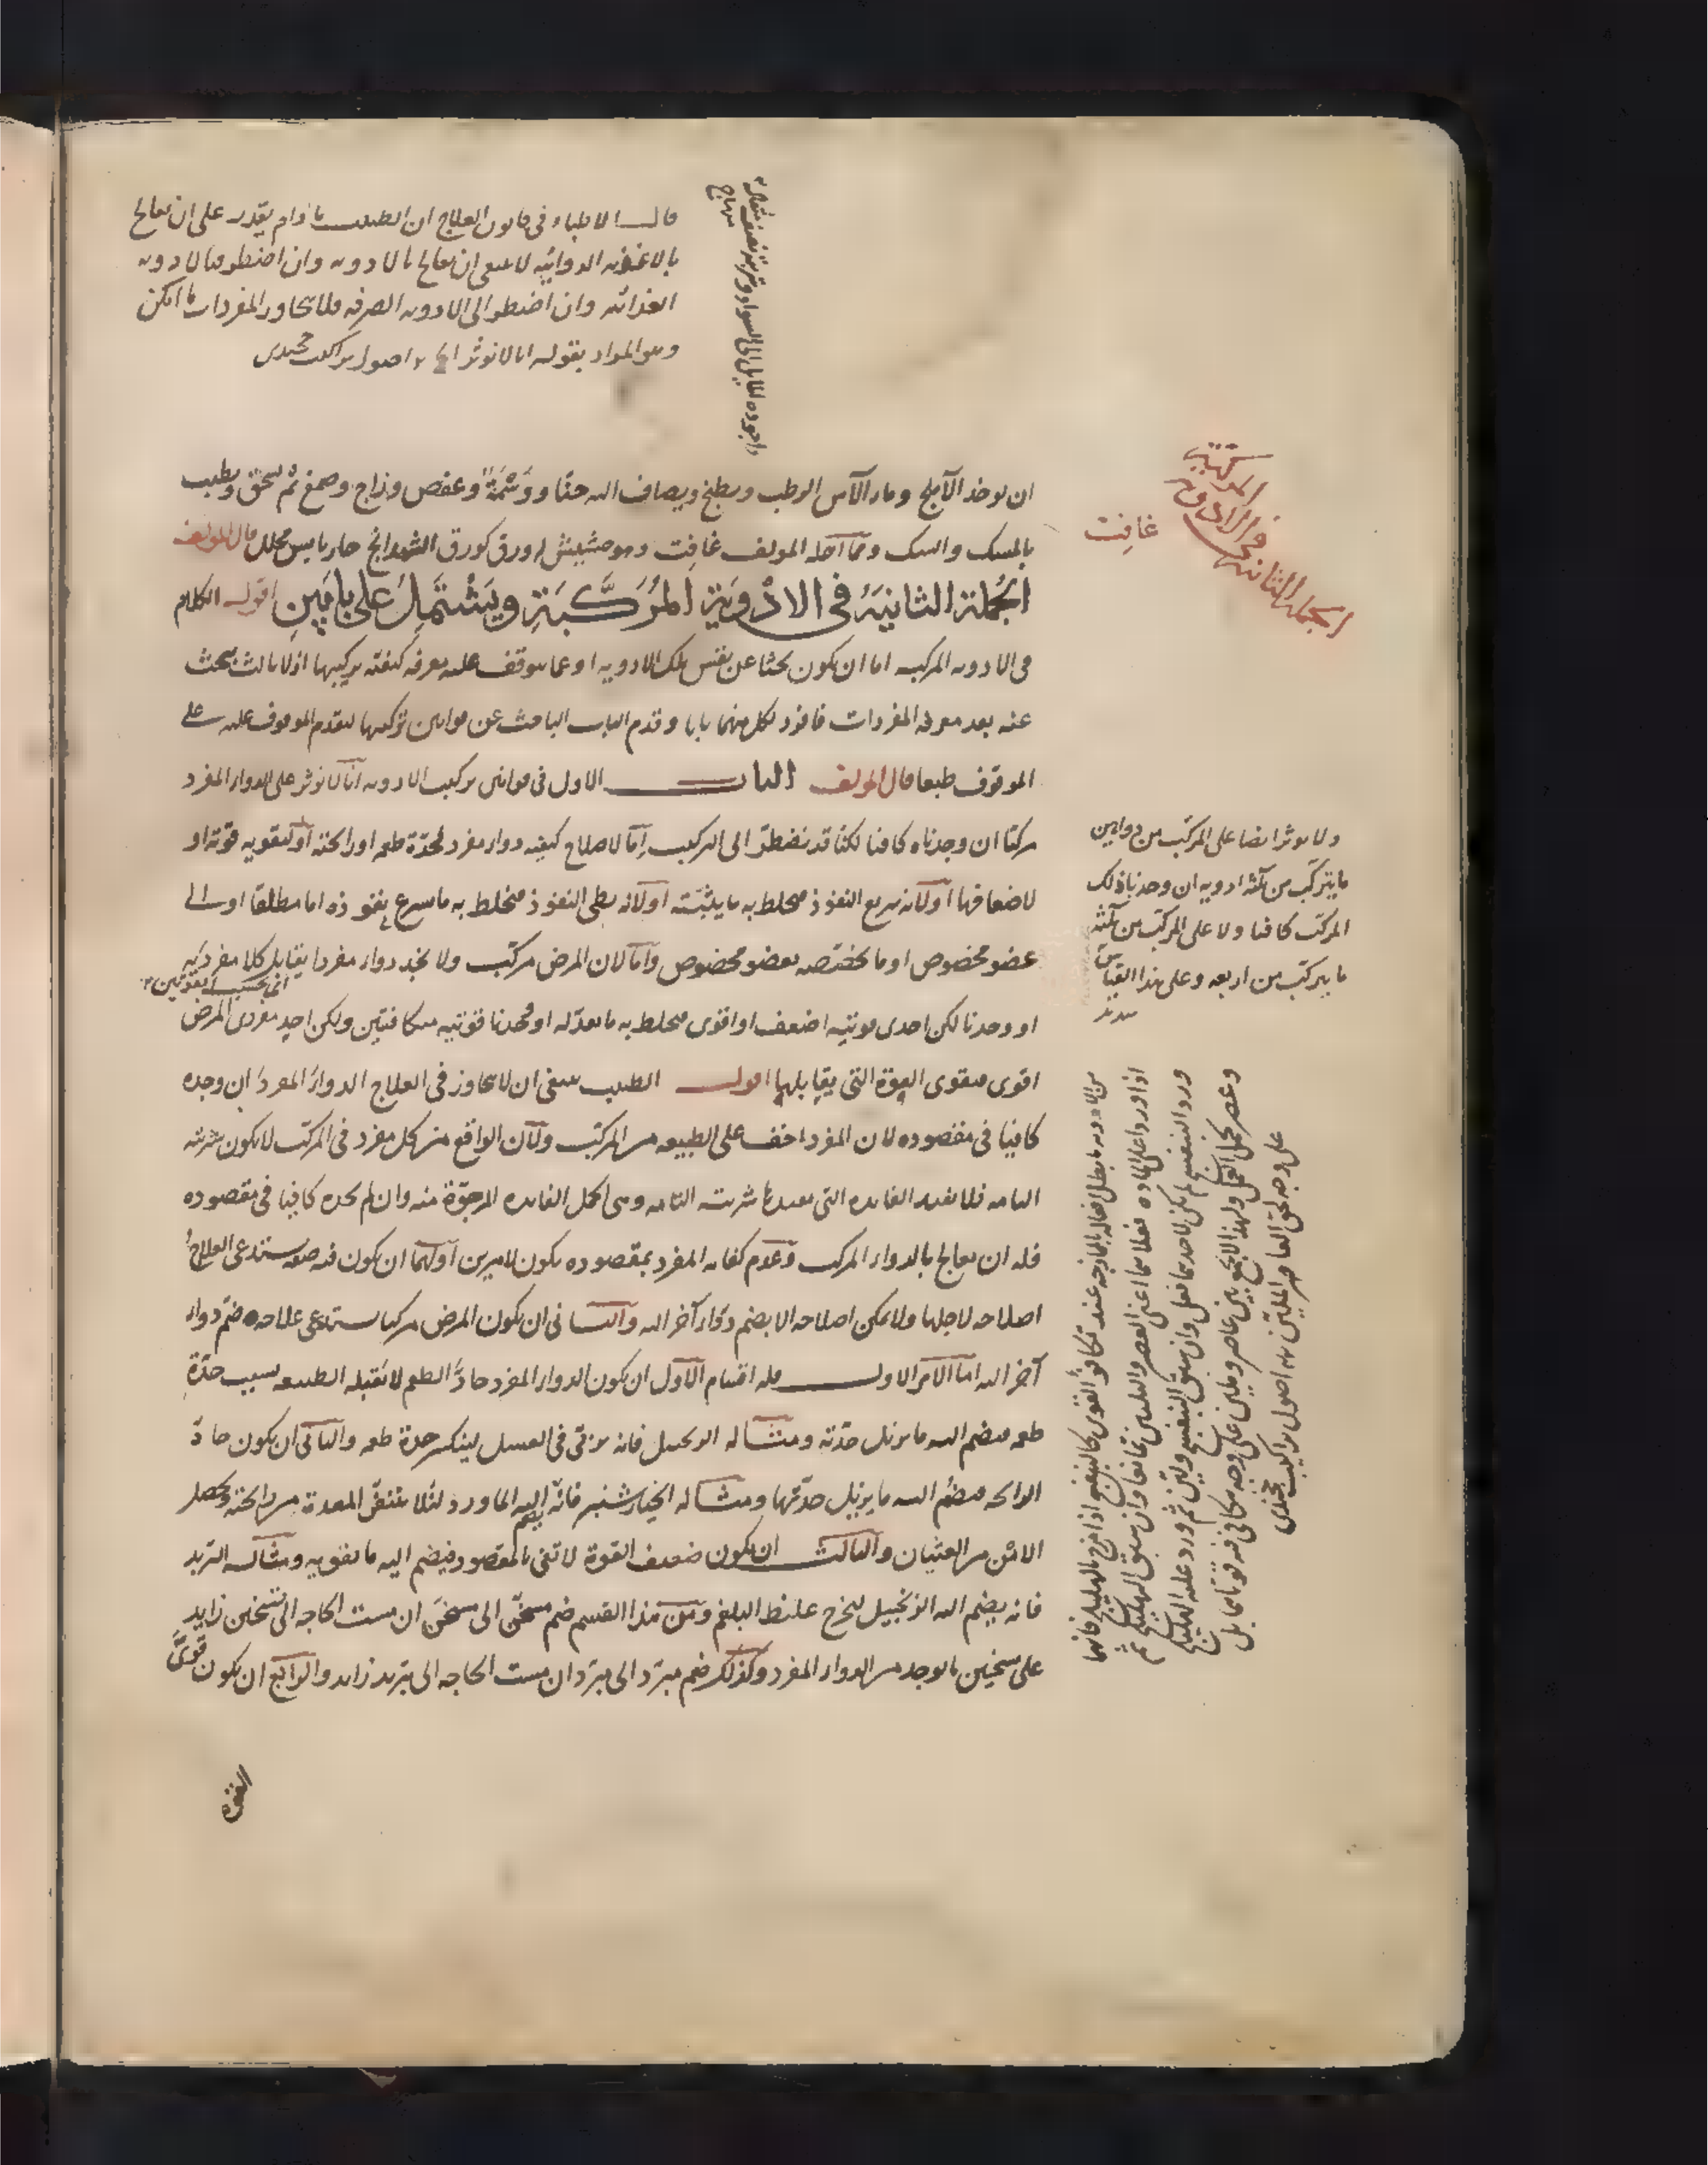 قال الاطباء في قانون العلاج ان الطبيب ما دام يقدر على ان يعالج
بالاغذية الدوائية لا ينبغي ان يعالج بالادوية وان اضطر فبالادوية
الغذائية وان اضطر الى الادوية الصرفة فلا يتجاوز المفردات ما امكن
وهو المراد بقوله انا لا نوثر الخ اصول تراكيب
ان يوخذ الآملج وماء الآس الرطب ويطبخ ويضاف اليه حنّا ووَسْمَة وعفص وزاج وصمغ ثم يسحق ويطيب
بالمسك والسك ومما اخله المولف غافِت وهو حشيش له ورق كورق الشهدانج حار يابس محلل قال المولف
الجُملة الثانيَةُ في الادْوِيَةِ المُرَكَّبَةِ ويَشْتَمِلُ على بابَينِ اقول الكلام
في الادوية المركبة اما ان يكون بحثا عن نفس تلك الادوية او عما يتوقف عليه معرفة كيفية تركيبها اذ لا ثالث يبحث
عنه بعد معرفة المفردات فافرد لكل منهما بابا وقدم الباب الباحث عن قوانين تركيبها لتقدم الموقوف عليه على
الموقوف طبعا قال المولف الباب الاول في قوانين تركيب الادوية انّا لا نوثر على الدواء المفرد
مركبا ان وجدناه كافيا لكنّا قد نضطرّ الى التركيب إمّا لاصلاح كيفية دواء مفرد لحدّة طعمه او رائحته او لتقوية قوته او
لاضعافها او لانه سريع النفوذ فيخلط به ما يثبّته او لانه بطي النفوذ فيخلط به ما يسرع نفوذه اما مطلقا او الى
عضو مخصوص او ما يختصه بعضو مخصوص وامّا لان المرض مركّب ولا نجد دواء مفردا يقابل كلا مفرديه
اي بحسب القوتين
او وجدنا لكن احدى قوتيه اضعف او اقوى فيخلط به ما يعدّله او وجدنا قوتيه متكافئتين ولكن احد مفردي المرض
اقوى فيقوى القوّة التي يقابلها اقول الطبيب ينبغي ان لا يتجاوز في العلاج الدواء المفرد ان وجده
كافيا في مقصوده لان المفرد اخف على الطبيعة من المركّب ولان الواقع من كل مفرد في المركّب لا يكون شربته
التامة فلا يفيد الفايدة التي تفيدها شربته التامة وهي اكمل الفايدة المرجوّة منه وان لم يجده كافيا في مقصوده
فله ان يعالج بالدواء المركب وعدم كفاية المفرد بمقصوده يكون لامرين اولهما ان يكون فيه صفة يستدعي العلاجُ
اصلاحه لاجلها ولا يمكن اصلاحه الا بضم دواء آخر اليه والثاني ان يكون المرض مركبا يستدعي علاجه ضمّ دواء
آخر اليه اما الامر الاول فله اقسام الاول ان يكون الدواء المفرد حادّ الطعم لا تقبله الطبيعة بسبب حدّة
طعمه فيضم اليه ما يزيل حدّته ومثاله الزنجبيل فانه يربّى في العسل لينكسر حدة طعمه والثاني ان يكون حادّ
الرائحة فيضم اليه ما يزيل حدّتها ومثاله الخيارشنبر فانّه يضم اليه الماورد لئلا تتنفّر المعدة من رائحته ويحصل
الامن من الغثيان والثالث ان يكون ضعيف القوة لا تفي بالمقصود فيضم اليه ما يقويه ومثاله التربد
فانه يضم اليه الزنجبيل ليخرج غليظ البلغم ومن هذا القسم ضم مسخّن الى مسخّن ان مست الحاجة الى تسخين زايد
على تسخين ما يوجد من الدواء المفرد وكذلك ضم مبرّد الى مبرّد ان مست الحاجة الى تبريد زايد والرابع ان يكون قوىَّ
القوة
الجملة الثانية
في الادوية
المركبة
غافِت
ولا نوثر ايضا على المركّب من دوايين
ما يتركّب من ثلثة ادوية ان وجدنا ذلك
المركّب كافيا ولا على المركّب من ثلثة
ما يتركّب من اربعة وعلى هذا القياس
سديد
من الادوية ما يبطل افعاله بالممازجة عند تكافؤ القوى كالبنفسج اذا مزج بالهليلج فانهما
اذا وردا على المادة فعلا معا اعني العصر والتليين تمانعا وان سبق الهليلج ثم
ورد البنفسج لم يكن لاحدهما فعل وان سبق البنفسج وليّن ثم ورد عليه الهليلج
وعصر كمل الفعل ولهذا لا يجمع بين عاصر وملين على وجه تكافي فيه قوتاهما بل
على وجه يلحق العاصر الملين اصول تراكيب